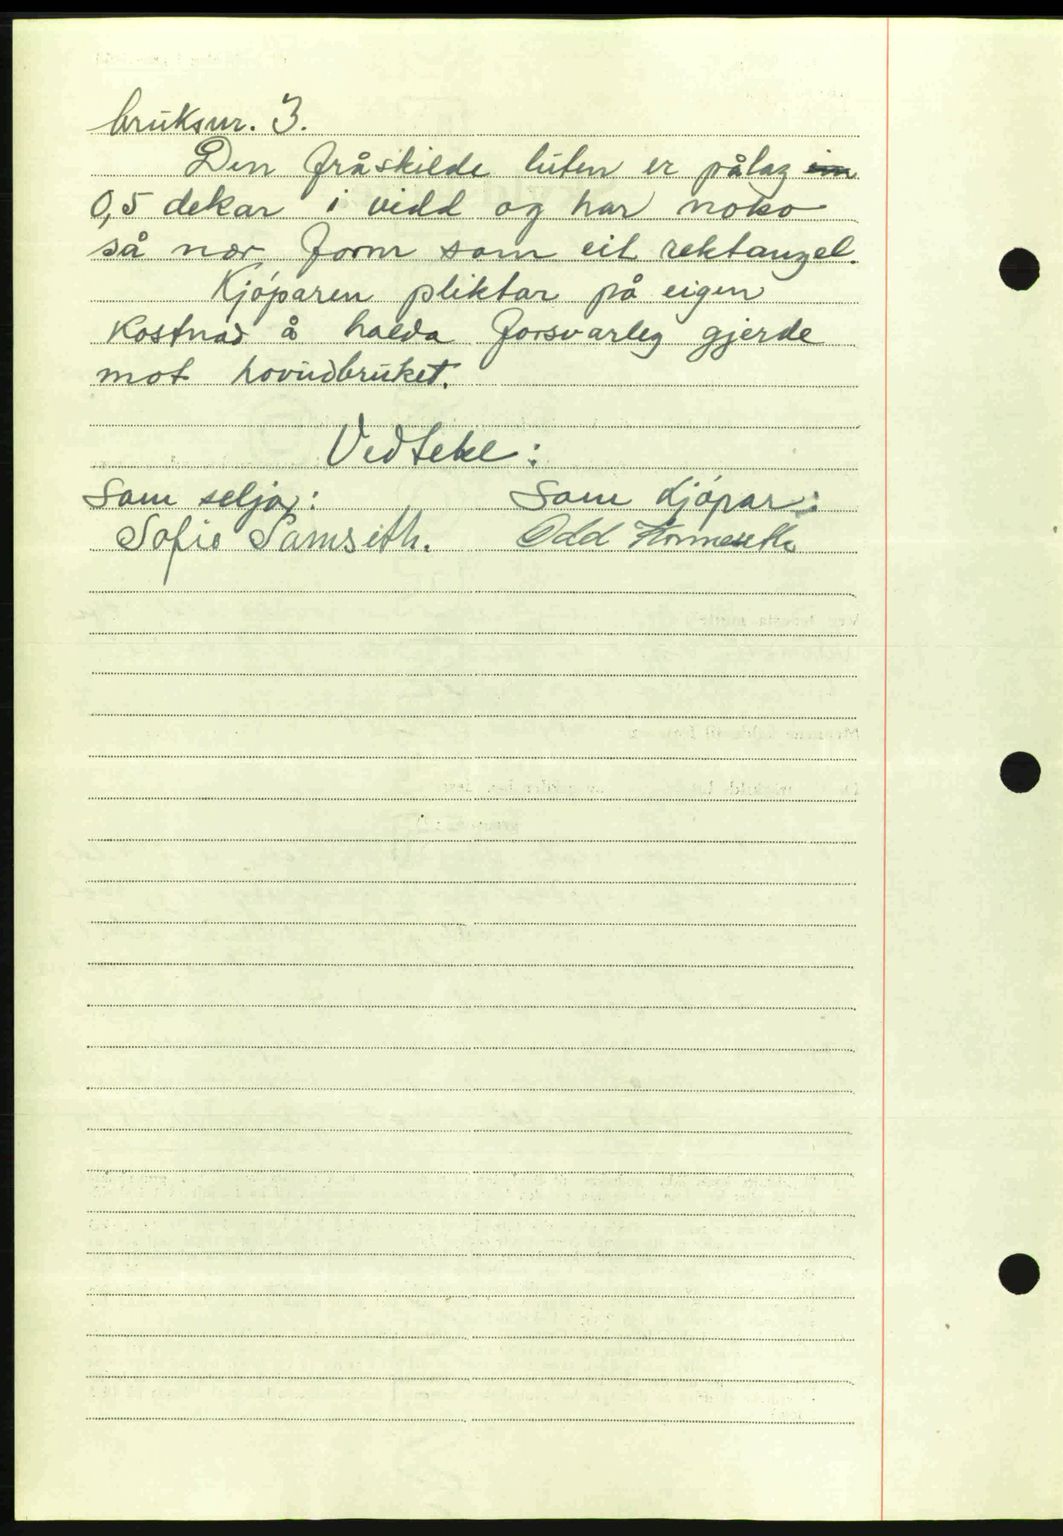 bruksnr. 3.
Den fråskilde luten er pålag im
0,5 dekar i vidd og har noko
så nær form som eit rektangel.
Kjóparen pliktar på eigen
kostnad å halda forsvarleg gjerde
mot hovudbruket.
Vedteke:
Som seljar: Som kjópar:
Sofie Samseth. Odd